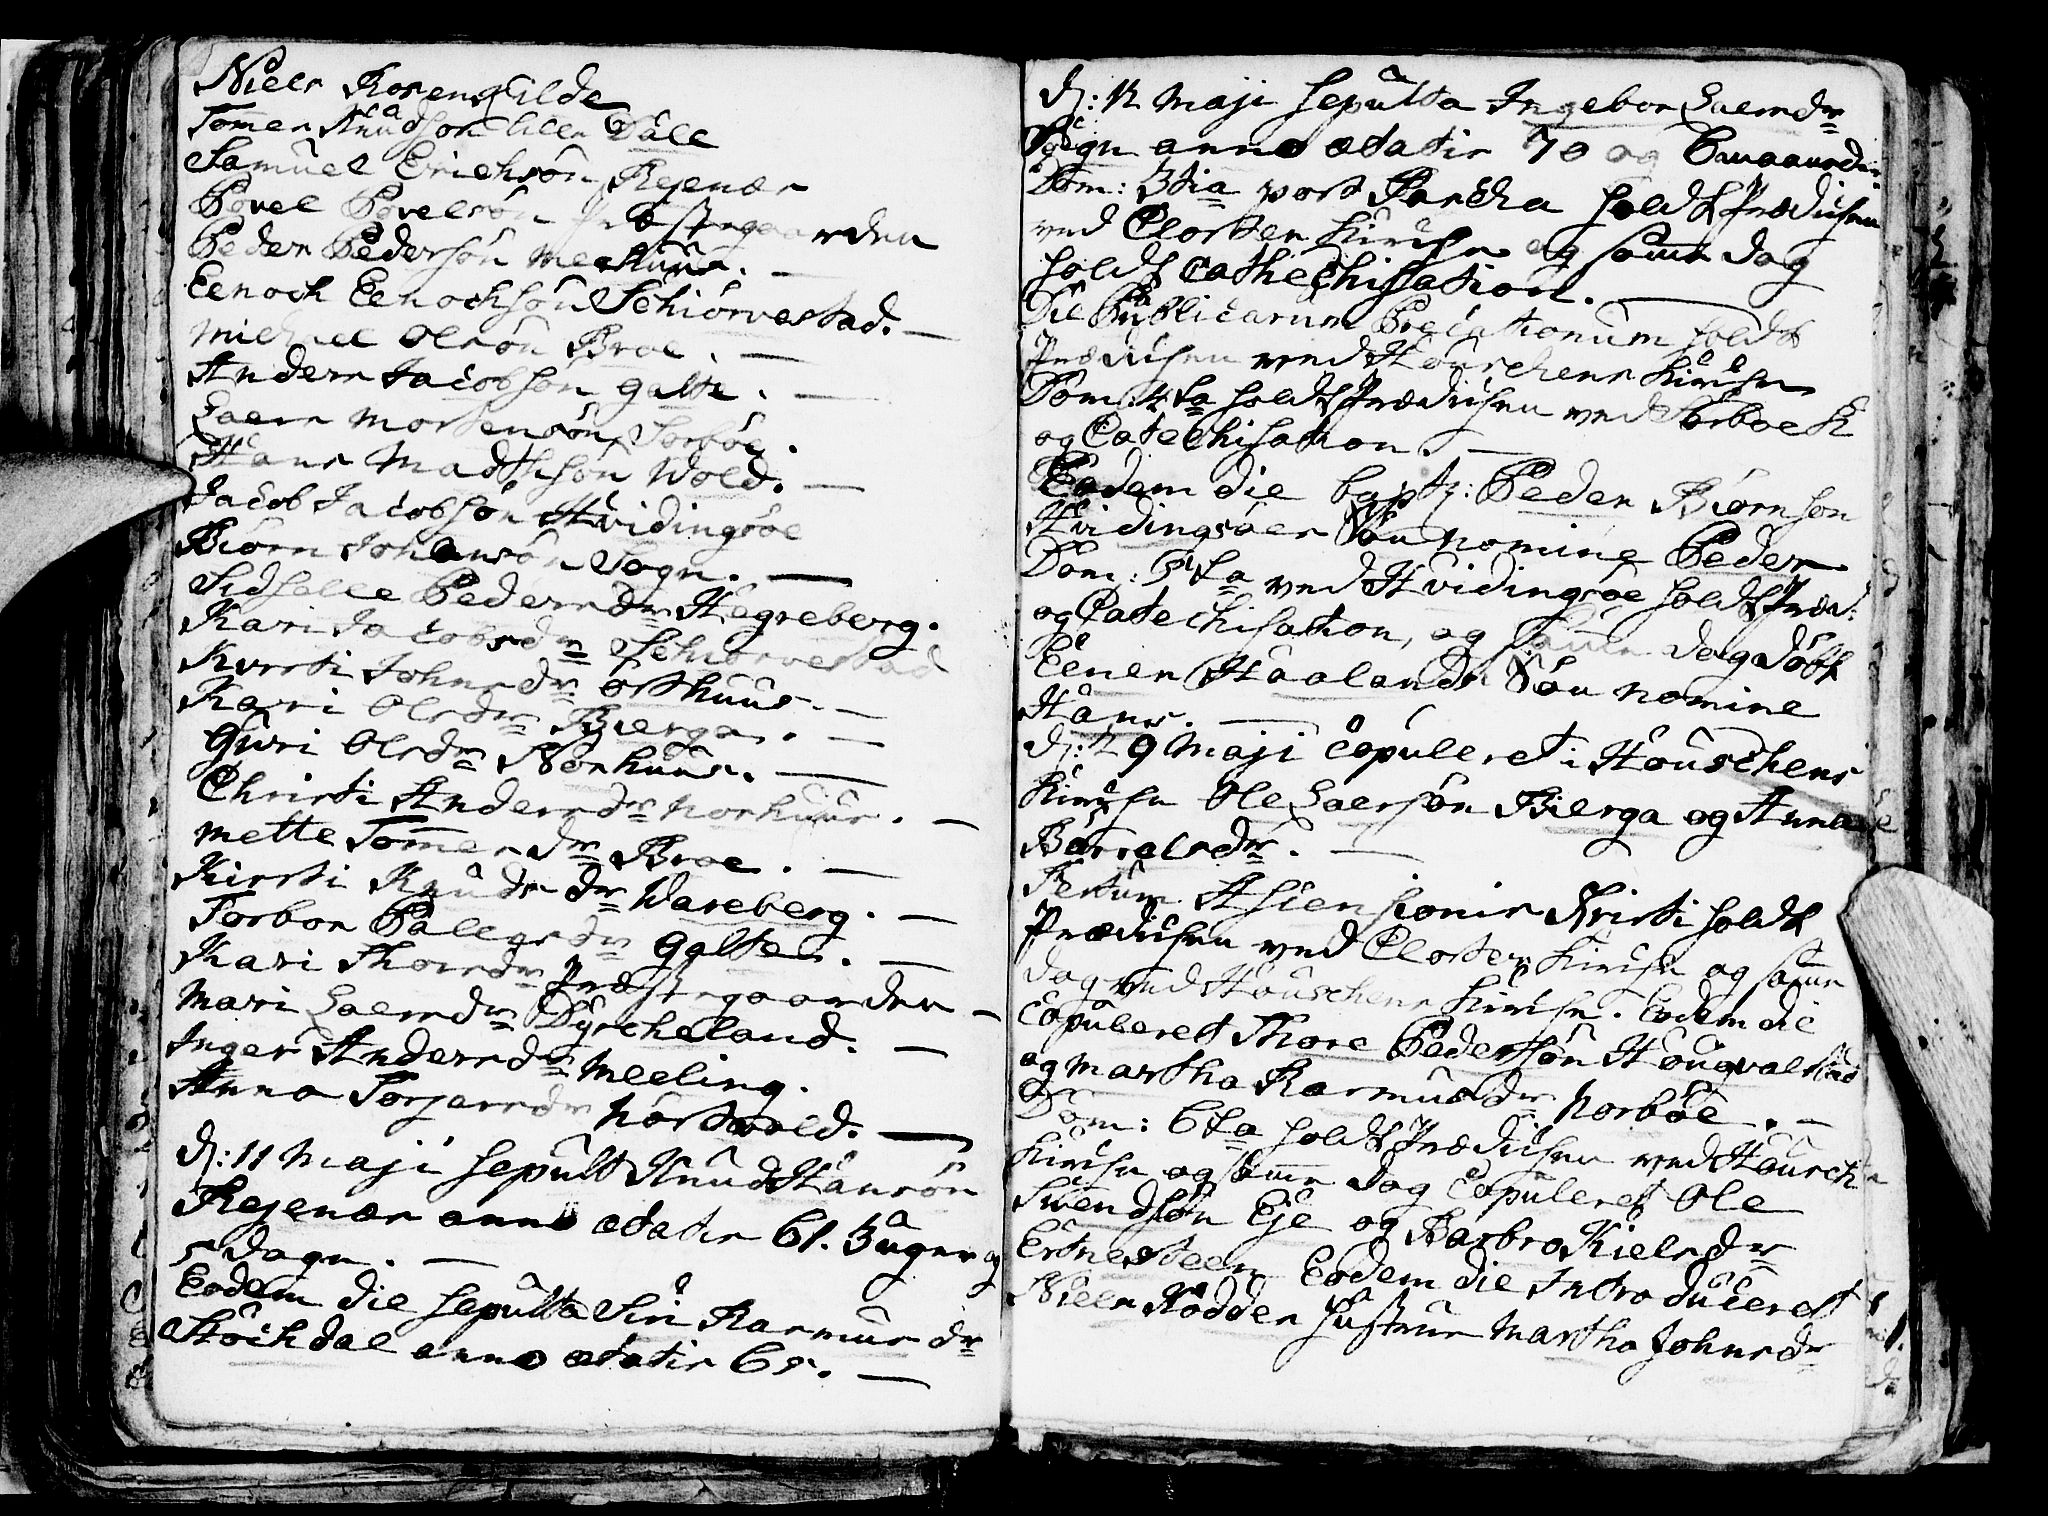 Niels Rosengilde
Tomes Knudsøn lille Dall
Samuel Erichsøn Rejenæs
Povel Povelsøn Præstegaarden
Peder Pedersøn Meehuus. —
Eenoch Eenochsøn Schiørvestad. —
Michael Olsøn Broe. —
Anders Jacobsøn Galte. —
Laers Mortensøn Sorbøe.
Hans Madssøn Wold. —
Jacob Jacobsøn Hvidingsøe
Biørn Johansøn Sogn. —
Sidselle Pedersdr Hegreberg.
Kari Jacobsdr Schiørvestad
Kyrsti Johnsdr Østhuus. —
Kari Olsdr Bierga. —
Guri Olsdr Norhuus. —
Christi Andersdr Norhuus. —
Mette Tomesdr Broe. —
Kirsti Knudsdr Wareberg. —
Torbor Pallesdr Galten. —
Kari Thorsdr Præstegaarden —
Mari Laersdr Dyrcheland. —
Inger Andersdr Meeling.
Anna Torgersdr Nortvold. —
D: 11 Maji sepult Knud Hansøn
Rejenæs anno ætatis 61. 3 uger og
5 dage. —
Eodem die sepulta Siri Rasmusdr
Støchdal anno ætatis 65. —
D: 12 Maji sepulta Ingebor Laersdr
Sogn anno ætatis 70 og 6 maaneder
Dom: 3tia post Pascha holdt Prædichen
ved Closter Kirche og samme dag
holdt Cathechisation. —
Die Publicarum Precationum holdt
Prædichen ved Houschens Kirche
Dom: 4ta holdt Prædichen ved Sørboe K
og Catechisation. —
Eodem die bapt: Peder Biørnsøn
Hvidingsøes Søn nomine Peder
Dom: 5ta ved Hvidingsøe holdt Præd:
og Catechisation, og samme dag døbt
Eener Haalands Søn nomine
Hans. —
D: 29 Maji copuleret i Houschens
Kirche Ole Laersøn Bierga og Anna
Børrelsdr. —
Festum Ascensionis Kristi holdt
Prædichen ved Closter Kirche og samme
dag ved Houschens Kirche. Eodem die
Copuleret Thore Pedersøn Hougvalstad
og Martha Rasmusdr Norbøe. —
Dom: 6ta holdt Prædichen ved Housch
Kirche og samme dag Copuleret Ole
Svendsøn Eje og Barbro Kielsdr
Ertnesteen Eodem die Introduceret
Niels Rødder hustrue Martha Johnsdr